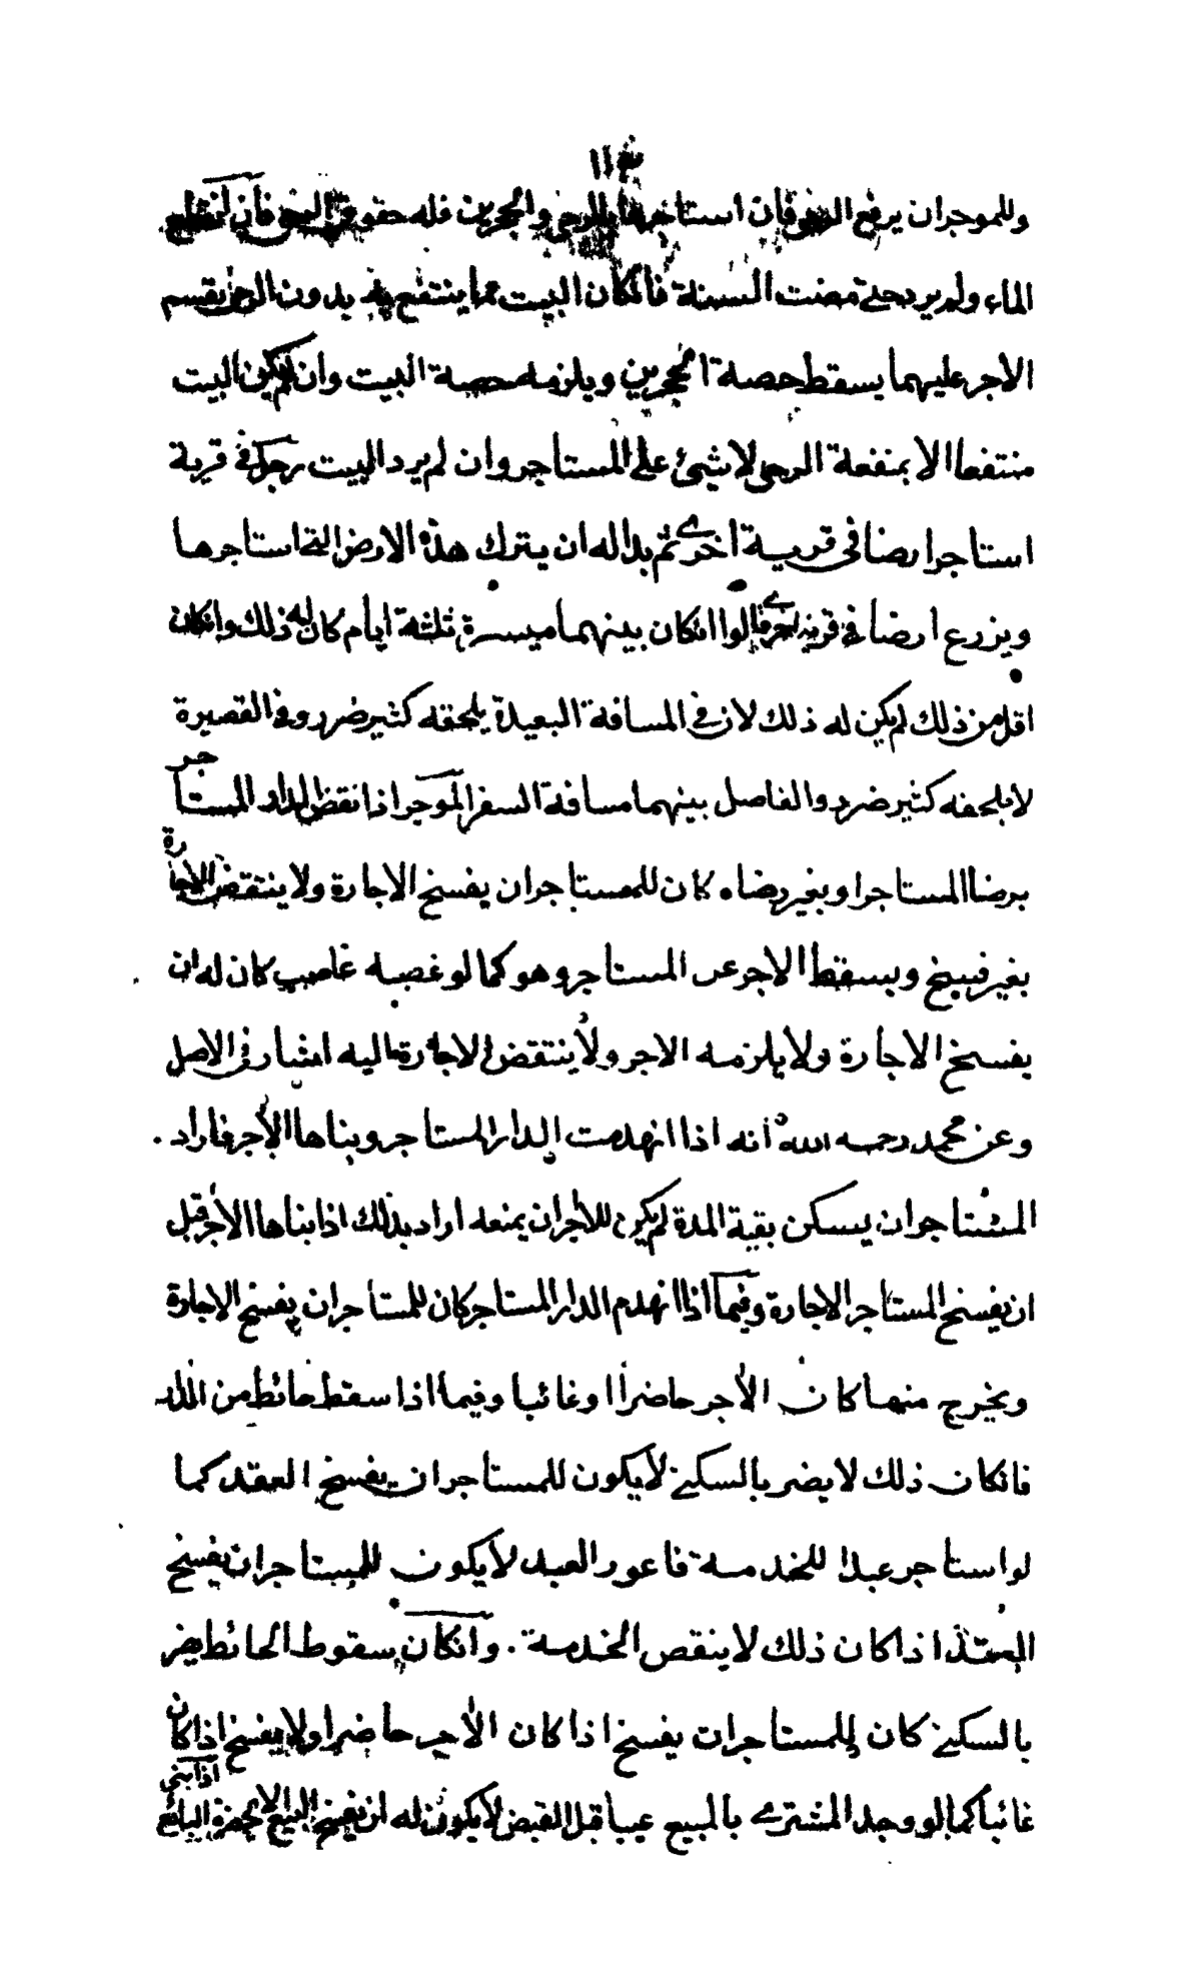 وللموجران يرفع الرحى فان استاجرها بالرحى والحجرين فله حقوق الرحى فان انقطع
الماء ولم يرد حتى مضت السنة فانكان البيت مما ينتفع به بدون الرحى يقسم
الاجر عليهما يسقط حصة الحجرين ويلزمه حصة البيت وان لم يكن البيت
منتفعا الا بمنفعة الرحى لا شئ على المستاجر وان لم يرد البيت رجل في قرية
استاجر ارضا في قرية اخرى ثم بدا له ان يترك هذه الارض التي استاجرها
ويزرع ارضا في قرية اخرى قالوا انكان بينهما ميسرة ثلثة ايام كان له ذلك وانكان
اقل من ذلك لم يكن له ذلك لان في المسافة البعيدة يلحقه كثير ضرر وفي القصيرة
لا يلحقه كثير ضرر والفاصل بينهما مسافة السفر الموجر اذا نقض الدار المستاجر
برضا المستاجر او بغير رضاه كان للمستاجران يفسخ الاجارة ولا ينتقض الاجارة
بغير فسخ ويسقط الاجر عن المستاجر وهو كما لو غصبه غاصب كان له ان
يفسخ الاجارة ولا يلزمه الاجر ولا ينتقض الاجارة اليه اشار في الاصل
وعن محمد رحمه الله انه اذا انهدمت الدار المستاجر وبناها الأجر فاراد
المستاجران يسكن بقية المدة لم يكن للأجران يمنعه اراد بذلك اذا بناها الأجر قبل
ان يفسخ المستاجر الاجارة وفيما اذا انهدم الدار المستاجر كان للمستاجران يفسخ الاجارة
ويخرج منها كان الأجر حاضرا او غائبا وفيما اذا سقط حائط من الدار
فانكان ذلك لا يضر بالسكنى لا يكون للمستاجران يفسخ العقد كما
لو استاجر عبدا للخدمة فاعور العبد لا يكون للمستاجران يفسخ
العقد اذا كان ذلك لا ينقص الخدمة . وانكان سقوط الحائط يضر
بالسكنى كان للمستاجران يفسخ اذا كان الأجر حاضرا ولا يفسخ اذا كان
غائبا كما لو وجد المشترى بالمبيع عيبا قبل القبض لا يكون له ان يفسخ البيع الا بحضرة البائع
اذا بنى